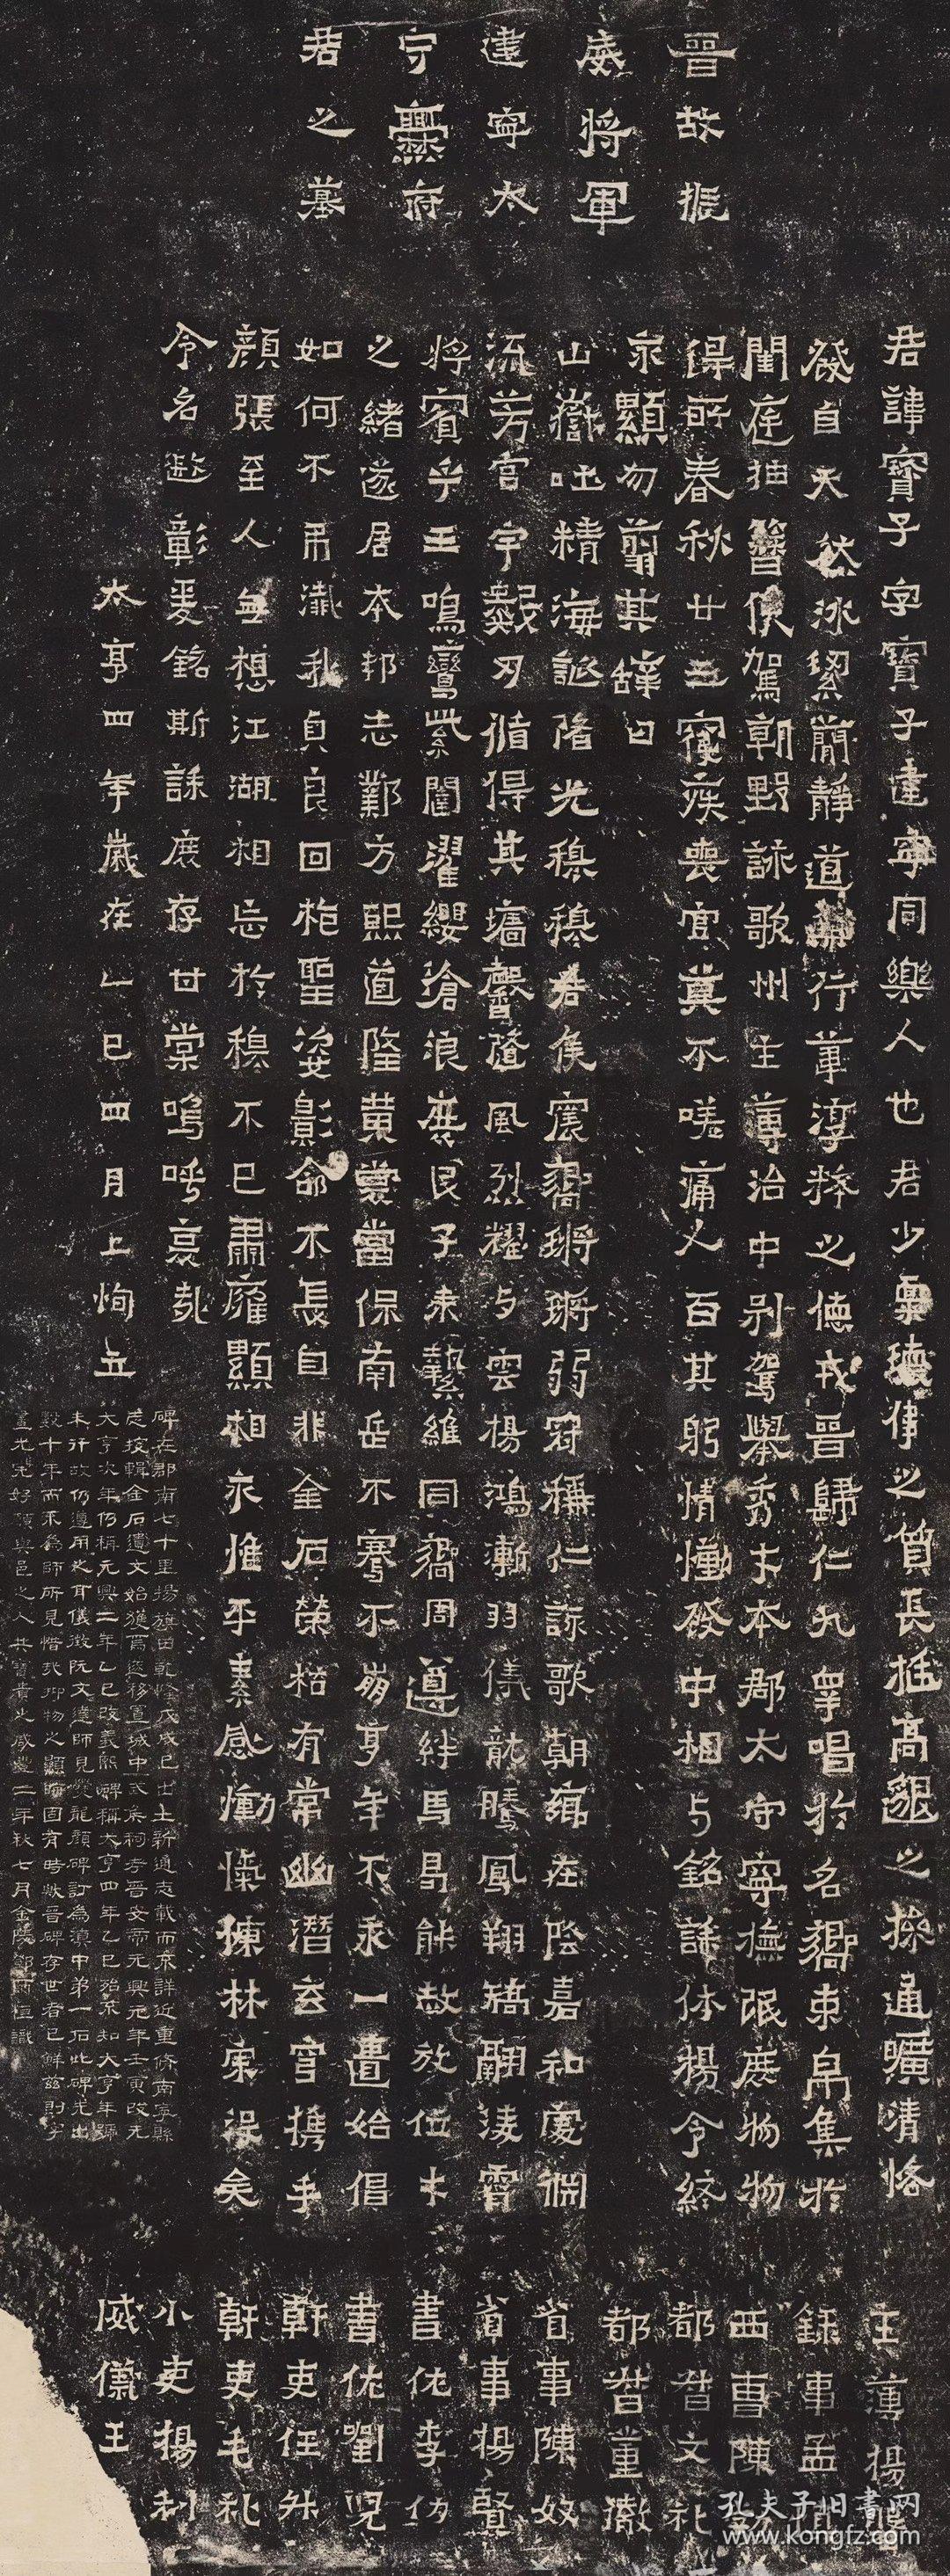 晉故振
威將軍
建寧太
守爨府
君之墓
君諱寶子字寶子建寧同樂人也君少稟瓌偉之質長挺高邈之操通曠清恪
發自天然冰絜簡靜道兼行葦淳粹之德戎晉歸仁九皋唱於名嚮束帛集於
閨庭抽簪俟駕朝野詠歌州主簿治中別駕舉秀才本郡太守寧撫氓庶物物
得所春秋廿三寢疾喪官莫不嗟痛人百其躬情慟發中相与銘誄休揚令終
永顯勿翦其辭曰
山嶽吐精海誕陼光穆穆君侯震嚮鏘鏘弱冠稱仁詠歌朝鄉在陰嘉和處淵
流芳宮宇數刃循得其墻馨隨風烈耀与雲揚鴻漸羽儀龍騰鳳翔矯翮淩霄
將賓乎王鳴鸞紫闥濯纓滄浪庶民子來縶維同嚮周遵絆馬曷能赦放位才
之緒遂居本邦志鄴方熙道隆黃裳當保南岳不騫不崩享年不永一匱始倡
如何不弔殲我貞良回枹聖姿影命不長自非金石榮枯有常幽潛玄穹攜手
顏張至人無想江湖相忘於穆不已肅雍顯相永惟平素感慟忾慷林宗沒矣
令名遐彰爰銘斯誄庶存甘棠嗚呼哀哉
太亨四年歲在乙巳四月上恂立
碑在郡南七十里揚旗田乾隆戊戌已出土新通志載而未詳近重修南寧縣
志搜輯金石遺文始獲焉遂移置城中武矦祠考晉安帝元興元年壬寅改元
大亨次年仍稱元興二年乙巳改義熙碑稱大亨四年乙巳殆不知大亨年號
未行故仍遵用之耳儀徵阮文達師見爨龍顏碑訂為滇中第一石此碑先出
數十年而不為師所見惜哉抑物之顯晦固有時歟晉碑存世者已鮮茲則字
畫尤完好願與邑之人共寶貴之咸豐二年秋七月金陵鄧爾恒識
主簿楊磐
錄事孟
西曹陳勃
都督文禮
都督董徹
省事陳奴
省事楊賢
書佐李仂
書佐劉兒
幹吏任升
幹吏毛禮
小吏楊利
威儀王
孔夫子旧書网
www.kongfz.com